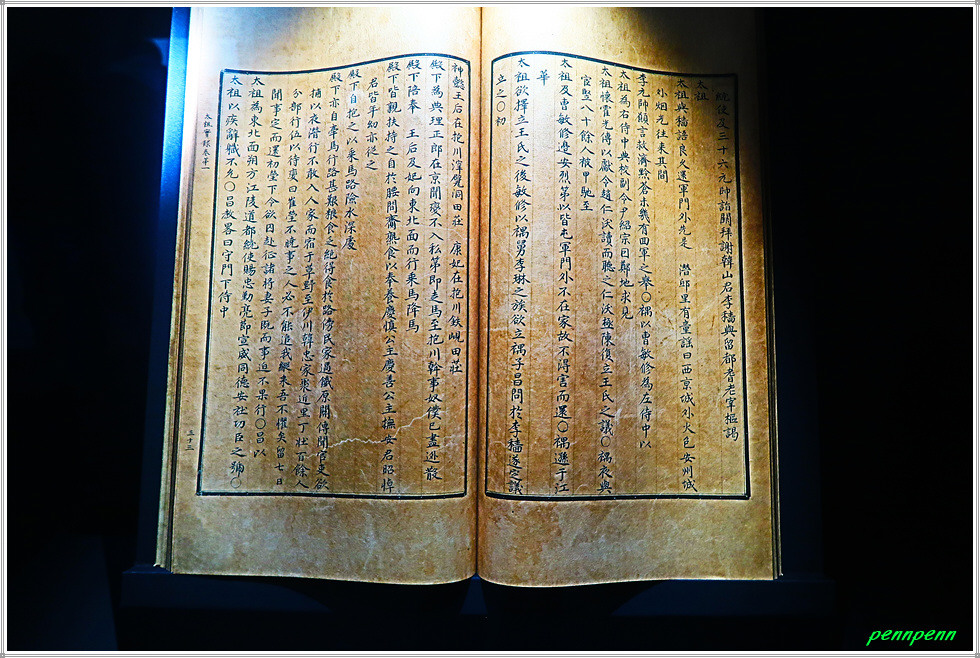 統使及三十六元帥詣闕拜謝韓山君李穡與留都耆老宰樞謁
太祖
太祖與穡語良久還軍門外先是 潛邸里有童謠曰西京城外火色安州城
外烟光往來其間
李元帥願言救濟黔蒼未幾有回軍之擧○禑以曺敏修為左侍中以
太祖為右侍中典校副令尹紹宗因鄭地求見
太祖懷霍光傳以獻令趙仁沃讀而聽之仁沃極陳復立王氏之議○禑夜與
宦竪八十餘人被甲馳至
太祖及曺敏修邊安烈第以皆屯軍門外不在家故不得害而還○禑遜于江
華
太祖欲擇立王氏之後敏修以禑舅李琳之族欲立禑子昌問於李穡遂定議
立之○初
神懿王后在抱川滓甓洞田莊 康妃在抱川鉄峴田莊
殿下為典理正郎在京聞變不入私第即走馬至抱川幹事奴僕已盡逃散
殿下陪奉 王后及妃向東北面而行乘馬降馬
殿下皆親扶持之自於腰間齎熟食以奉養慶愼公主慶善公主撫安君昭悼
君皆年幼亦從之
殿下自抱之以乘馬路險水深處
殿下亦自牽馬行路甚艱粮食乏絶得食於路傍民家過鐵原關傳聞官吏欲
捕以夜潛行不敢入人家而宿于草野至伊川韓忠家聚近里丁壯百餘人
分部行伍以待變曰崔瑩不曉事之人必不能追我縱來吾不懼矣留七日
聞事定而還初瑩下令欲囚赴征諸將妻子既而事迫不果行○昌以
太祖為東北面朔方江陵道都統使賜忠勤亮節宣威同德安社功臣之號○
太祖以疾辭職不允○昌敎畧曰守門下侍中
太祖實錄卷第一
三十三
pennpenn